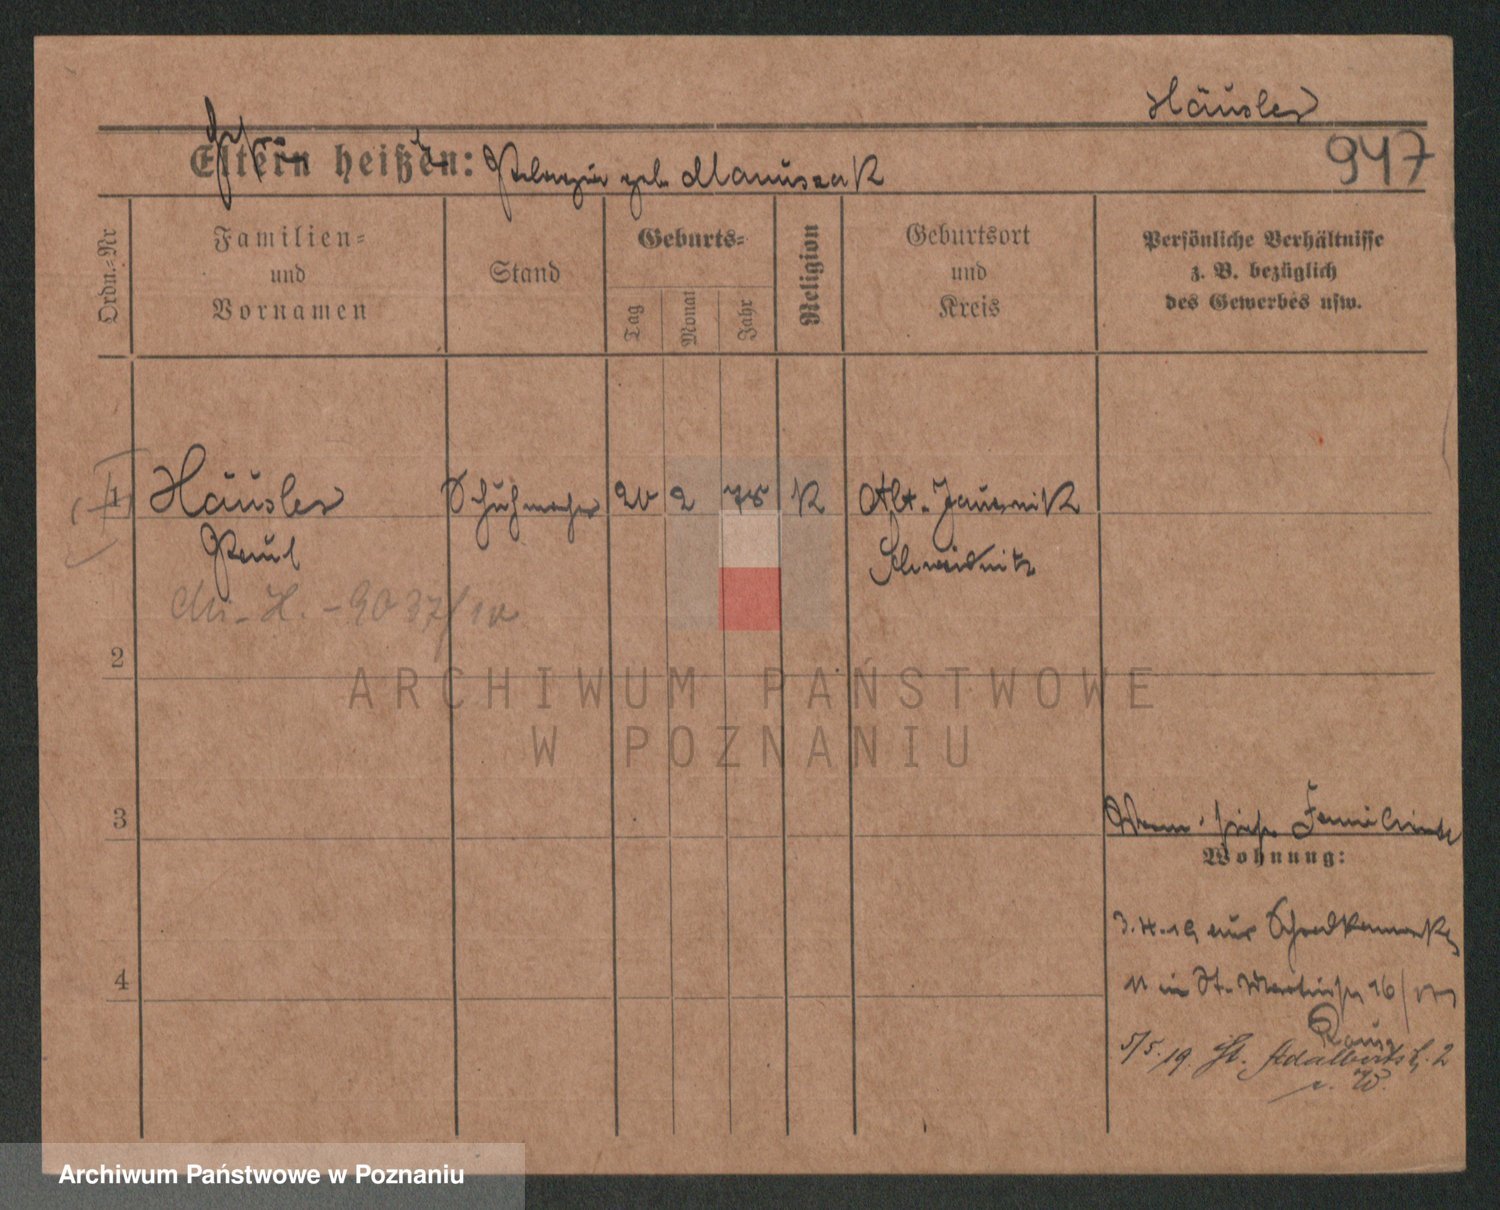 Häusler
947
Eltern heißen: Pelagia geb. Manuszak
Ordn.-Nr
Familien-
und
Vornamen
Stand
Geburts-
Tag
Monat
Jahr
Religion
Geburtsort
und
Kreis
Persönliche Verhältnisse
z. B. bezüglich
des Gewerbes usw.
1 Häusler Schuhmacher 20 2 78 K Alt-Jauernik
Paul Schweidnitz
2
ARCHIWUM PAŃSTWOWE
W POZNANIU
3
siehe Familien
Wohnung:
3.4.19 aus
4
11 in St. Martinstr. 16/
5/5.19. St. Adalbertstr. 2
v. W.
Archiwum Państwowe w Poznaniu